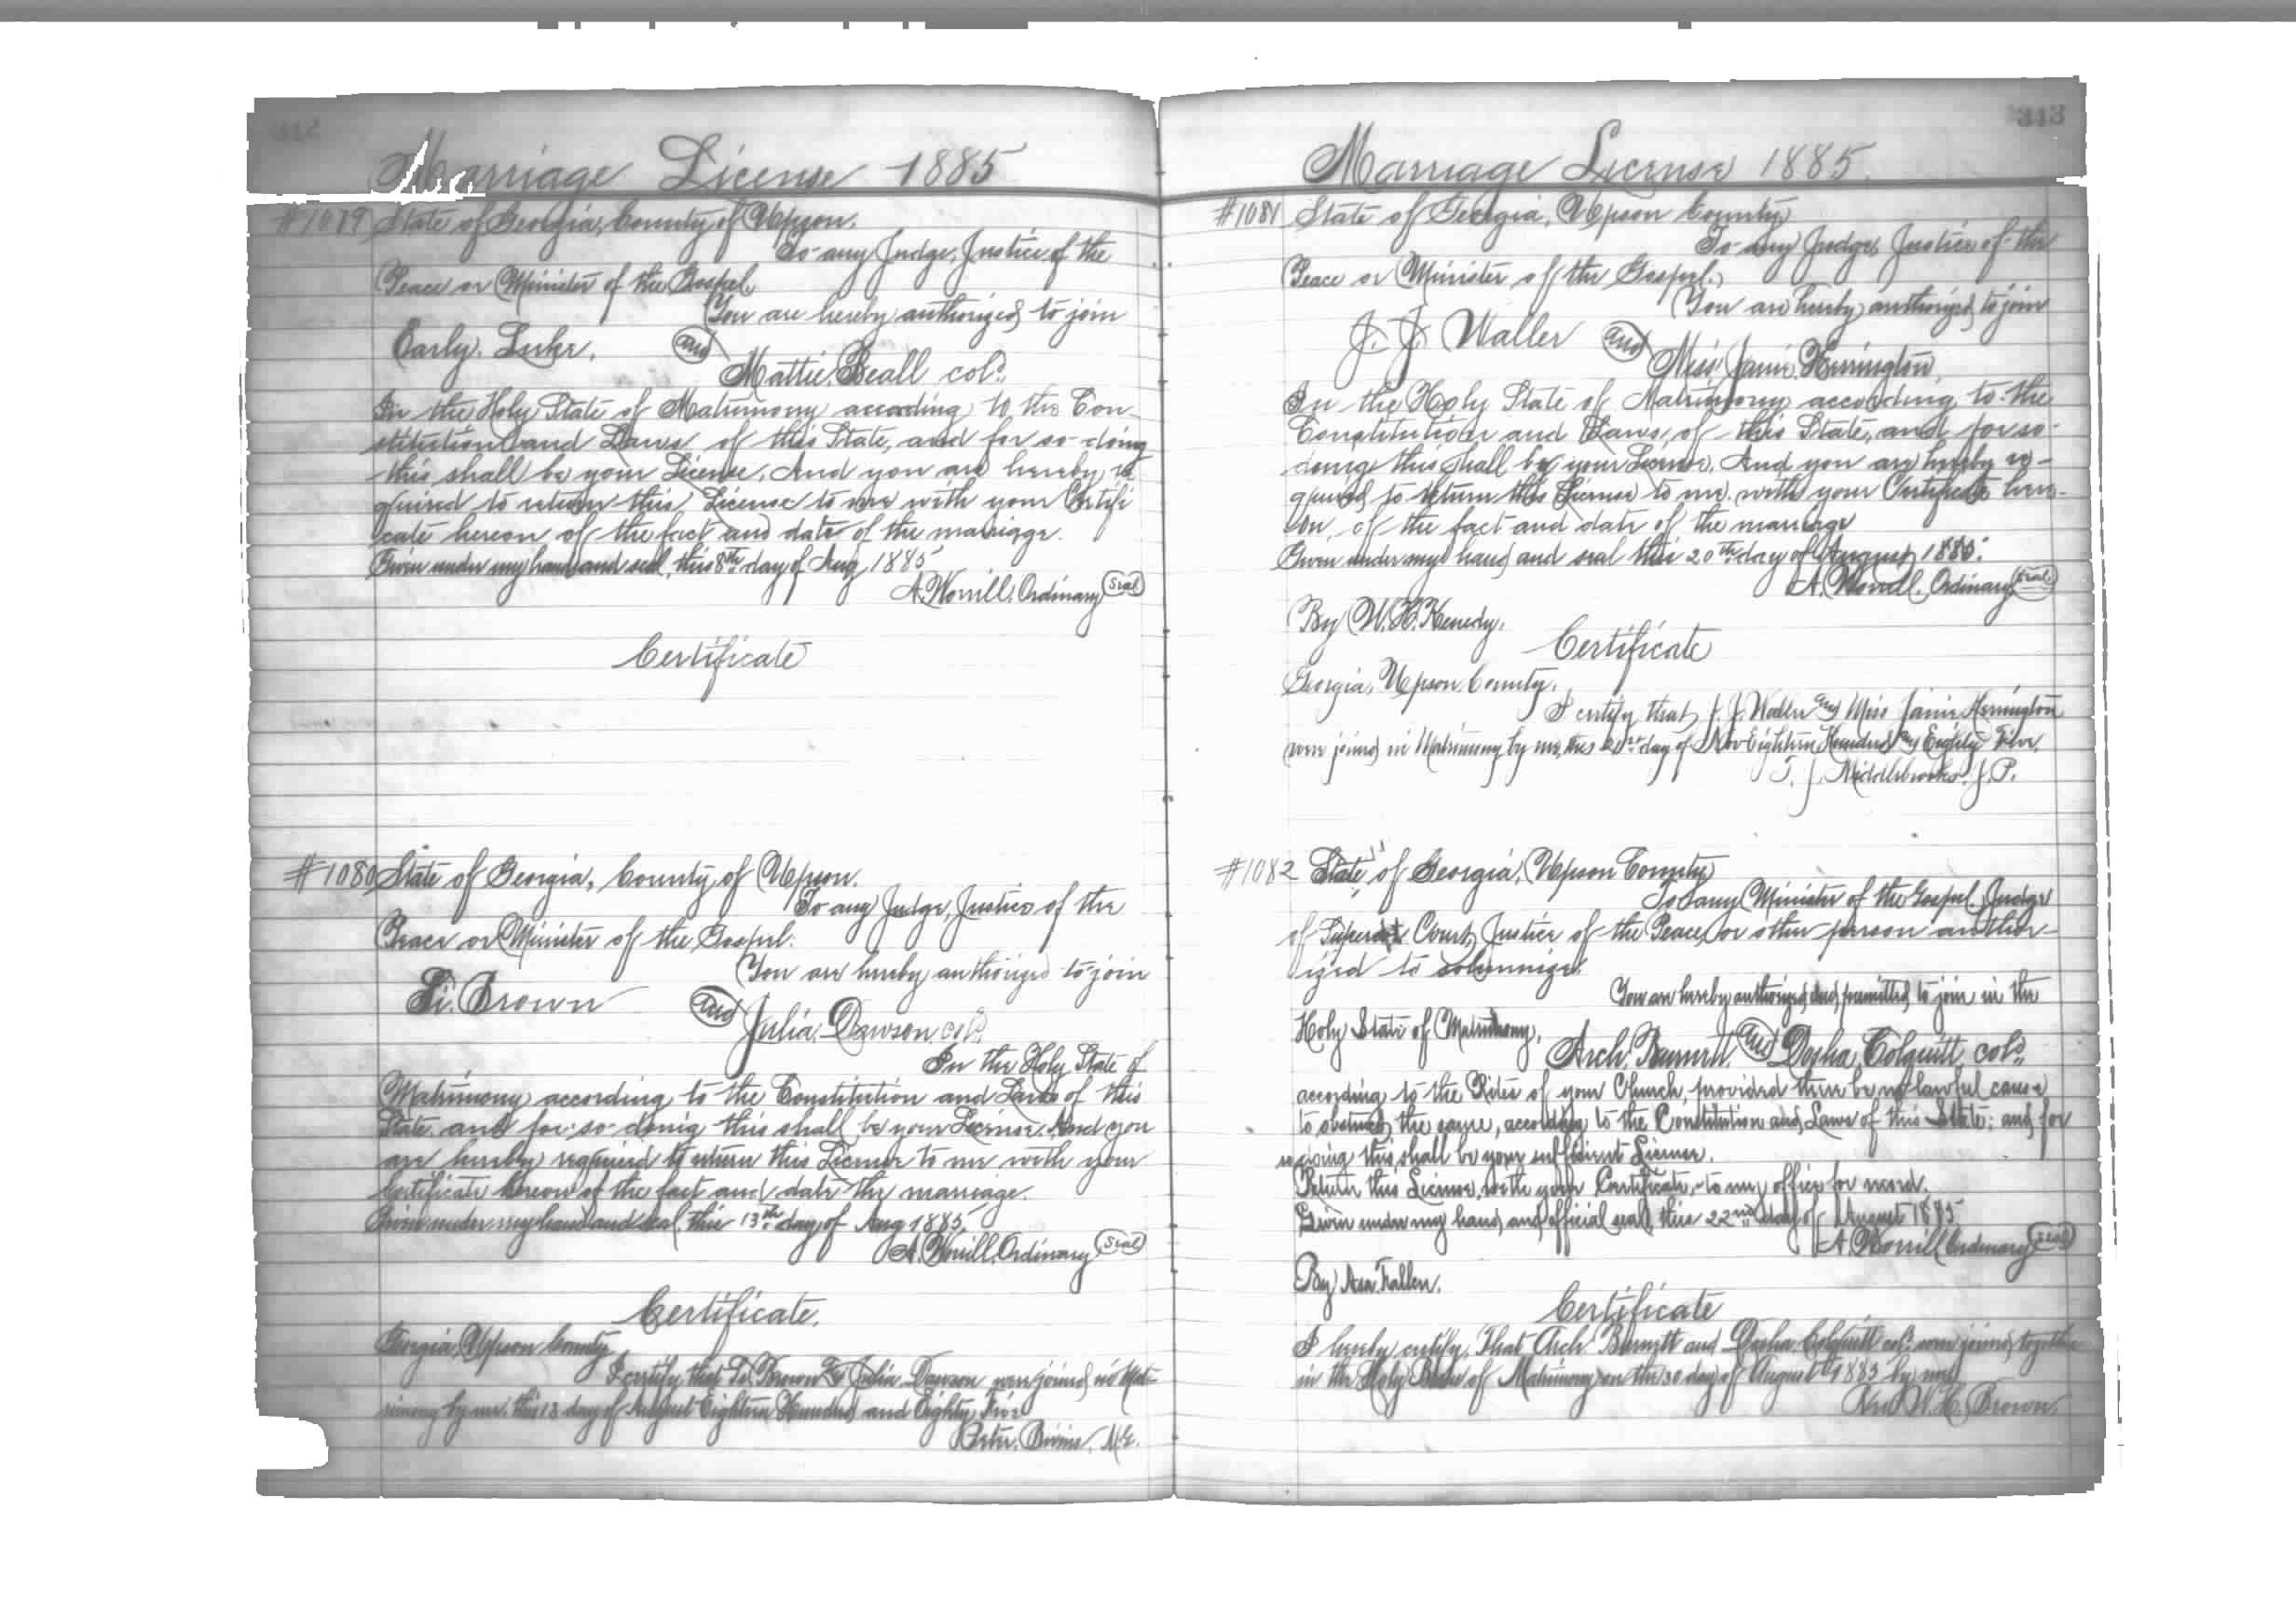 Marriage License 1885
#1079 State of Georgia, County of Upson.
To any Judge, Justice of the
Peace or Minister of the Gospel.
You are hereby authorized to join
Early Luke, and
Mattie Beall col^d.
In the Holy State of Matrimony according to the Con-
stitution and Laws of this State, and for so doing
this shall be your License. And you are hereby re
quired to return this License to me with your Certifi
cate hereon of the fact and date of the marriage.
Given under my hand and seal, this 8th day of Aug 1885
A. Worrill, Ordinary Seal
Certificate
#1080 State of Georgia, County of Upson.
To any Judge, Justice of the
Peace or Minister of the Gospel.
You are hereby authorized to join
Brown and
Julia Dawson col^d.
In the Holy State of
Matrimony according to the Constitution and Laws of this
State and for so doing this shall be your License. And you
are hereby required to return this License to me with your
Certificate hereon of the fact and date the marriage.
Given under my hand and seal, this 13th day of Aug 1885.
A. Worrill, Ordinary Seal
Certificate.
Georgia, Upson County
I certify that Brown & Julia Dawson were joined in Mat-
rimony by me, this 13 day of August Eighteen Hundred and Eighty Five
Peter Bivins, M.G.
343
Marriage License 1885.
#1081 State of Georgia, Upson County
To any Judge, Justice of the
Peace or Minister of the Gospel.
You are hereby authorized to join
J. J. Waller and
Miss Janie Herrington,
In the Holy State of Matrimony according to the
Constitution and Laws, of this State, and for so-
doing this shall be your License. And you are hereby re-
quired to return this License to me with your Certificate here-
on, of the fact and date of the marriage
Given under my hand and seal this 20th day of August 1885.
A. Worrill, Ordinary Seal
By W. H. Kenedy.
Certificate
Georgia, Upson County.
I certify that J. J. Waller and Miss Janie Herrington
were joined in Matrimony by me, this day of Nov Eighteen Hundred and Eighty Five.
T. J. Middlebrooks J.P.
#1082 State of Georgia, Upson County
To any Minister of the Gospel, Judge
of Superior Court, Justice of the Peace, or other person author-
ized to solemnize.
You are hereby authorized and permitted to join in the
Holy State of Matrimony,
Arch. Burnett and Dosha Colquitt col^d.
according to the Rites of your Church, provided there be no lawful cause
to obstruct the same, according to the Constitution and Laws of this State; and for
so doing this, shall be your sufficient License.
Return this License, with your Certificate, to my office for record.
Given under my hand and official seal, this 22nd day of August 1885
A. Worrill Ordinary Seal
By Asa Fallen.
Certificate
I hereby certify, That Arch Burnett and Dosha Colquitt col^d. were joined together
in the Holy State of Matrimony on the 30 day of August 1885 by me
Rev W. H. Brown.